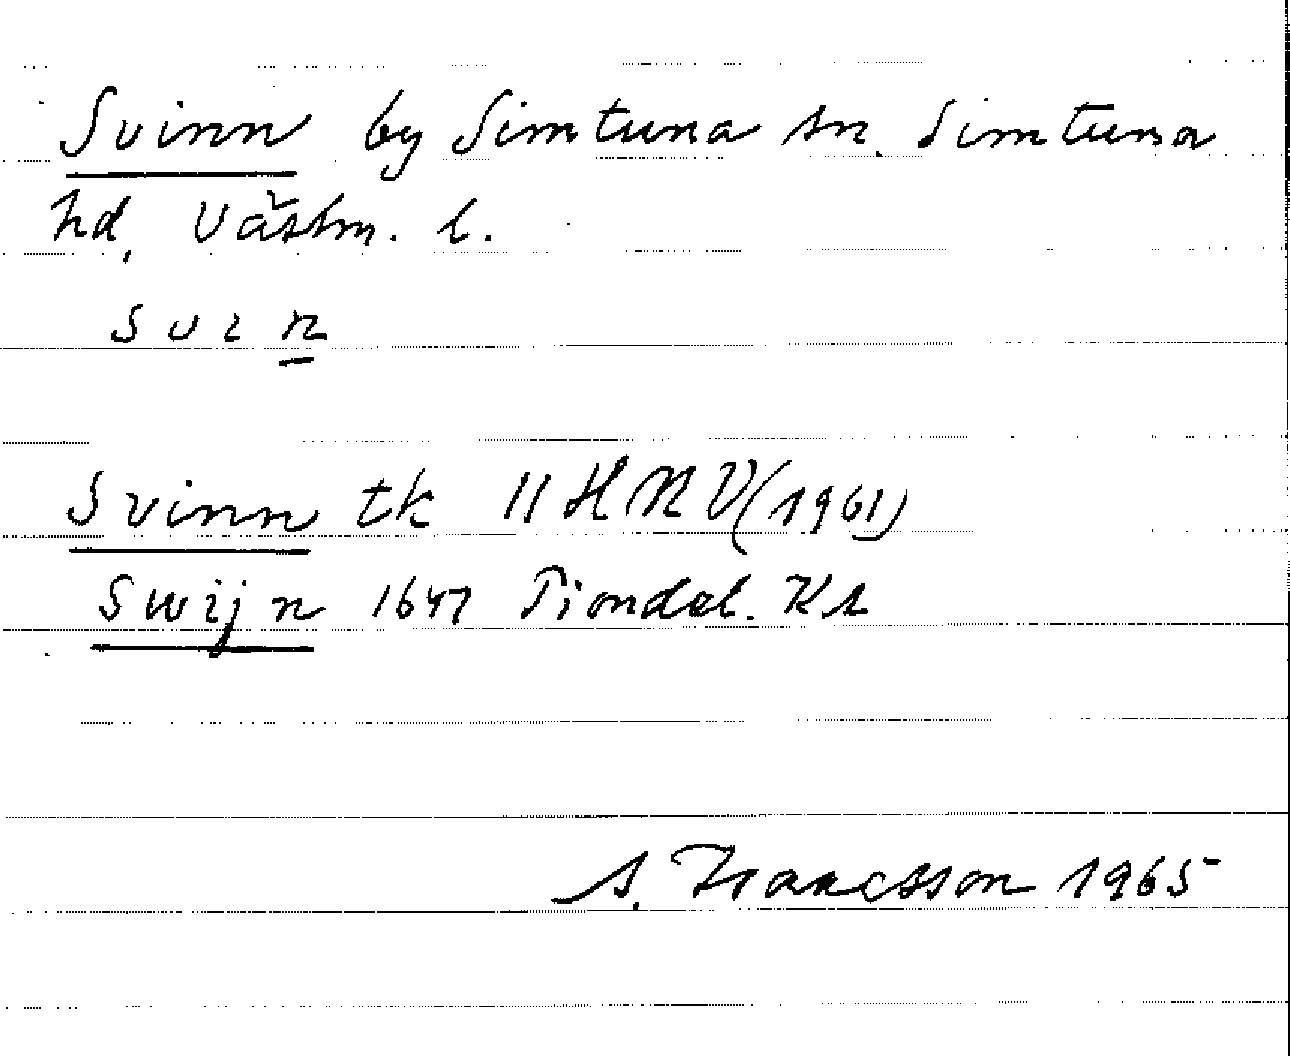 Svinn by Simtuna sn. Simtuna
hd, Västm. l.
svin
Svinn tk 11H NV (1961)
Swijn 1647 Tiondel. KA
A. Isaacsson 1965